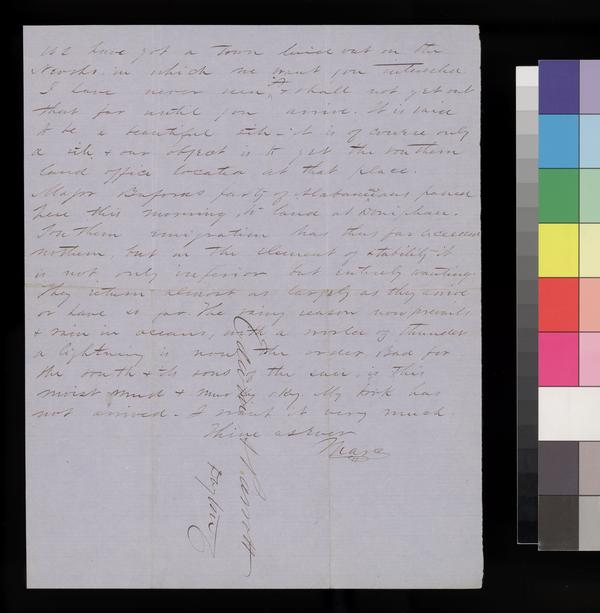 We have got a town laid out on the
Neosho in which we want you interested
I have never seen it & shall not get out
that far until you arrive. It is said
to be a beautiful site - it is of course only
a site & our object is to get the southern
land office located at that place.
Major Bufords party of Alabamians passed
here this morning to land at Doniphan.
Southern emigration has thus far exceeded
nothern, but in the element of stability it
is not only inferior but entirely wanting.
They return almost as largely as they arrive
or have so far. The rainy season now prevails
& rain in oceans, with a world of thunder
& lightning is now the order. Bad for
the south & its sons of the is this
moist mud & murky sky. My book has
not arrived. I want it very much.
Thine as Ever
Parrott
Dayton